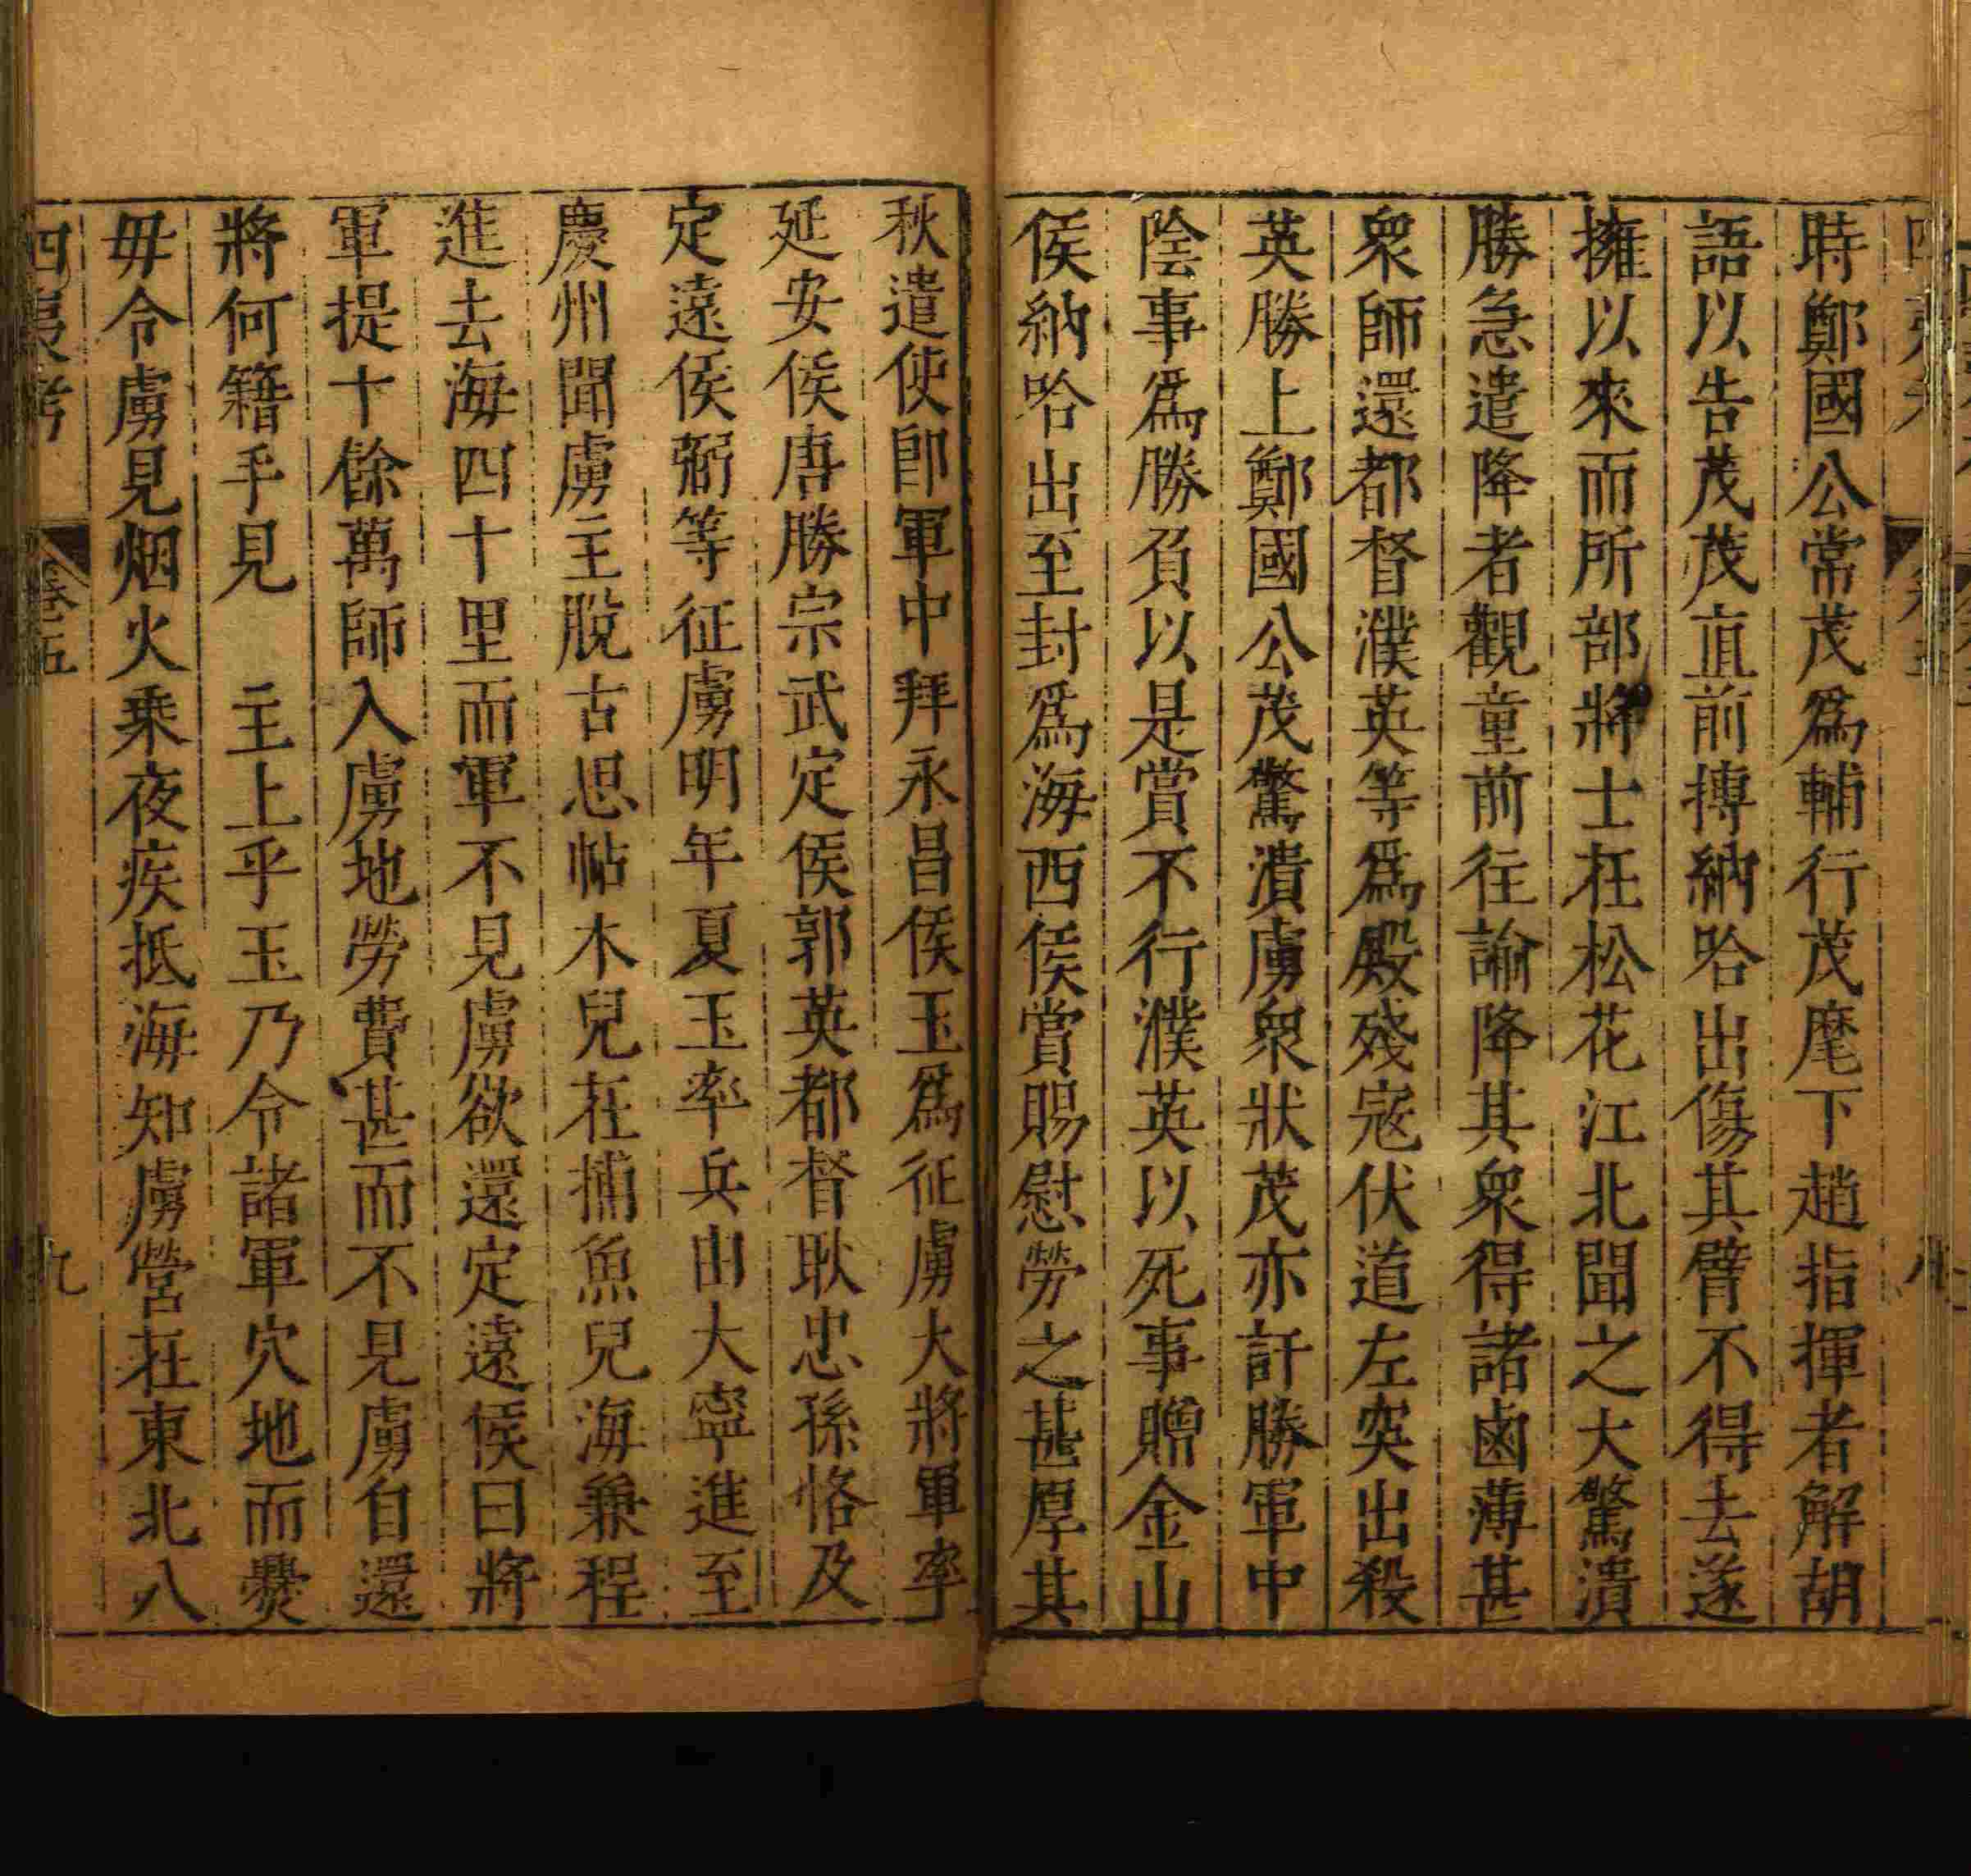 時鄭國公常茂爲輔行茂麾下趙指揮者解胡
語以告茂茂直前搏納哈出傷其臂不得去遂
擁以來而所部將士在松花江北聞之大驚潰
勝急遣降者觀童前往諭降其衆得諸鹵薄甚
衆師還都督濮英等爲殿殘寇伏道左突出殺
英勝上鄭國公茂驚潰虜衆狀茂亦訐勝軍中
陰事爲勝負以是賞不行濮英以死事贈金山
侯納哈出至封爲海西侯賞賜慰勞之甚厚其
秋遣使卽軍中拜永昌侯玉爲征虜大將軍率
延安侯唐勝宗武定侯郭英都督耿忠孫恪及
定遠侯弼等征虜明年夏玉率兵由大寧進至
慶州聞虜主脫古思帖木兒在捕魚兒海兼程
進去海四十里而軍不見虜欲還定遠侯曰將
軍提十餘萬師入虜地勞費甚而不見虜自還
將何籍乎見 主上乎玉乃令諸軍穴地而爨
毋令虜見烟火乘夜疾抵海知虜營在東北八
四夷考 卷五 九